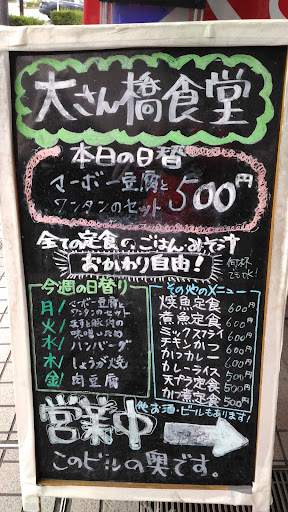 大さん橋食堂
本日の日替
マーボー豆腐と
ワンタンのセット
500円
全ての定食の、ごはん・みそ汁
おかわり自由!
何杯
でもOK!
今週の日替り
月/マーボー豆腐と
ワンタンのセット
火/
味噌いため
水/ハンバーグ
木/しょうが焼
金/肉豆腐
その他のメニュー
焼魚定食 600円
煮魚定食 600円
ミックスフライ 600円
チキンカツ 600円
カツカレー 600円
カレーライス 500円
天プラ定食 500円
かつ煮定食 500円
他お酒・ビールもあります!
営業中
このビルの奥です。